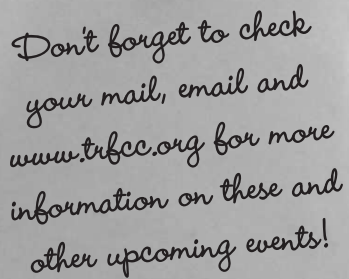 Don't forget to check
your mail, email and
www.trfcc.org for more
information on these and
other upcoming events!